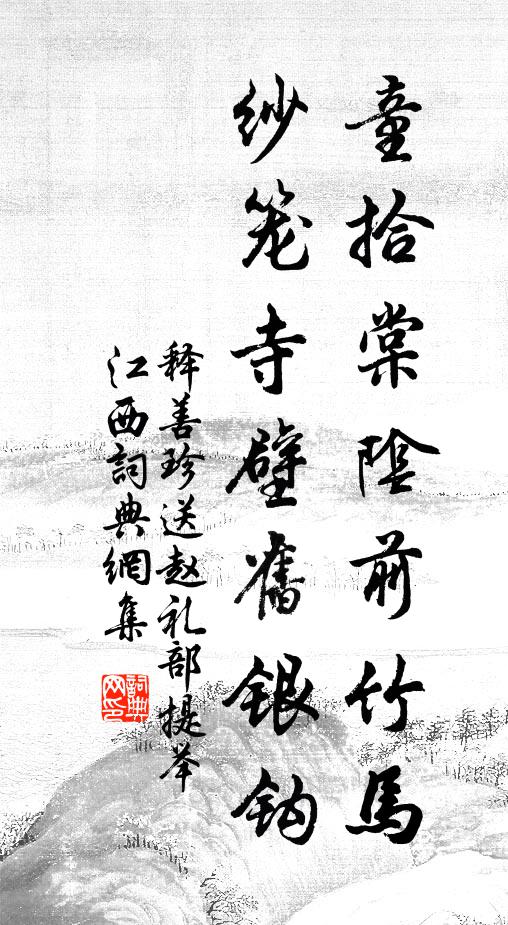 童拾棠陰前竹馬
紗笼寺壁舊銀钩
释善珍送赵礼部提举
江西詞典網集
詞典网印